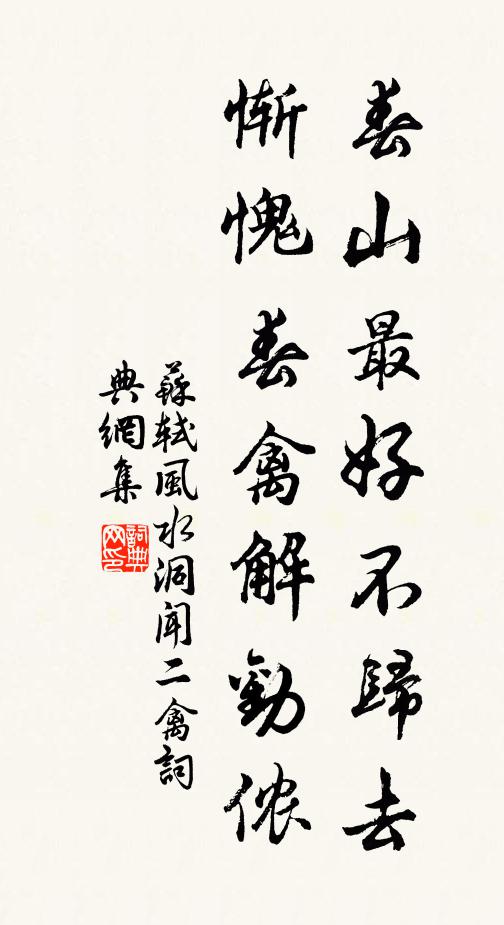 春山最好不歸去
慚愧春禽解勸侬
蘇軾風水洞聞二禽詞
典網集
詞典
网印